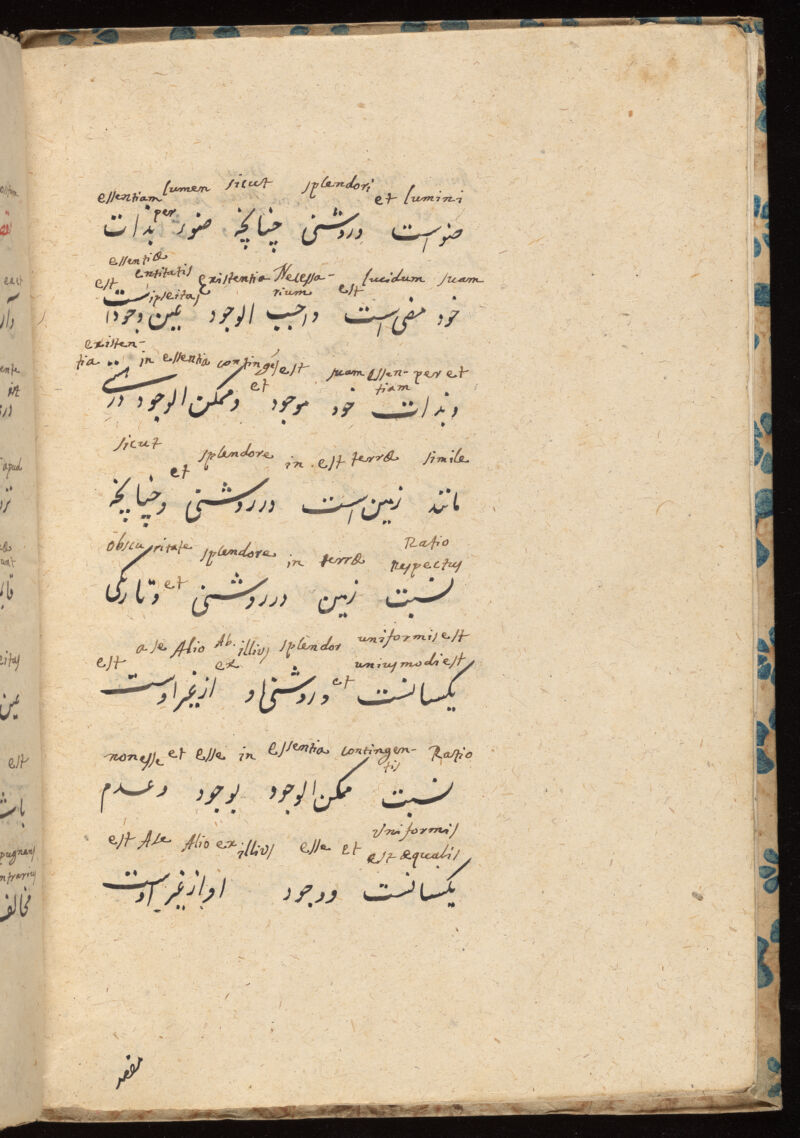 essentiam lumen sicut splendori et lumini
per
ضو است و روشنی چنانچه ضو ر بذات
essentiæ
est entitatis existentia Necessa- lucidum suam
ipseitas rium est
خود مضی است واجب الوجود عین وجود است
existen-
tia in essentia contingēs est suam essen- per et
et tiam
و بذات خود موجود و ممکن الوجود در هستی
sicut splendore in est terræ simile
et
مانند زمین است در روشنی و چنانچه
obscuritate splendore in terræ Ratio
et Respectus
نسبت زمین در روشنی و تاریکی
est a se Alio Ab illius splendor uniformis est
ex et unius modi est
یکسانست و روشنی او از غیر اوست
non esse et esse in essentia contingen- Ratio
tis
نسبت ممکن الوجود بوجود و عدم
est A se Alio ex illius esse et Uniformis
est æqualis
یکسانست و وجود او از غیر اوست
مقصد